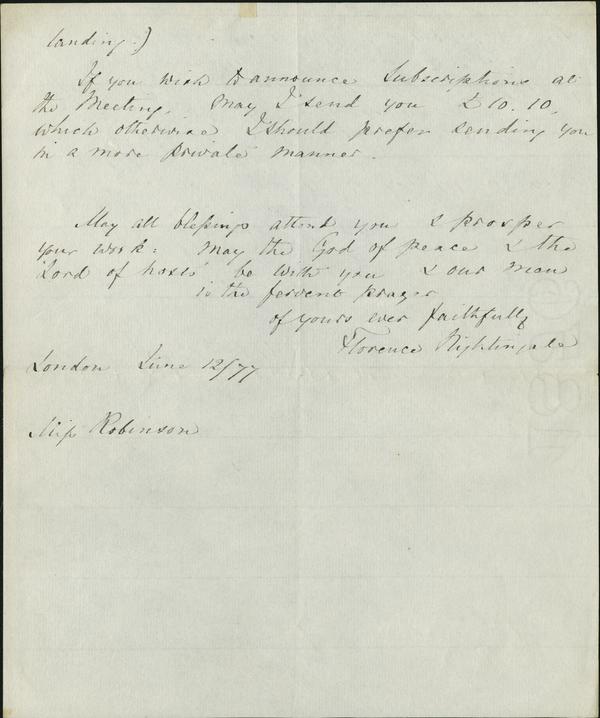 landing.)
If you wish to announce Subscriptions at
the Meeting, may I send you £10.10,
which otherwise I should prefer sending you
in a more private manner.
May all blessings attend you & prosper
your work: may the God of peace & the
'Lord of hosts' be with you & our men
is the fervent prayer
of yours ever faithfully
Florence Nightingale
London June 12/77
Miss Robinson